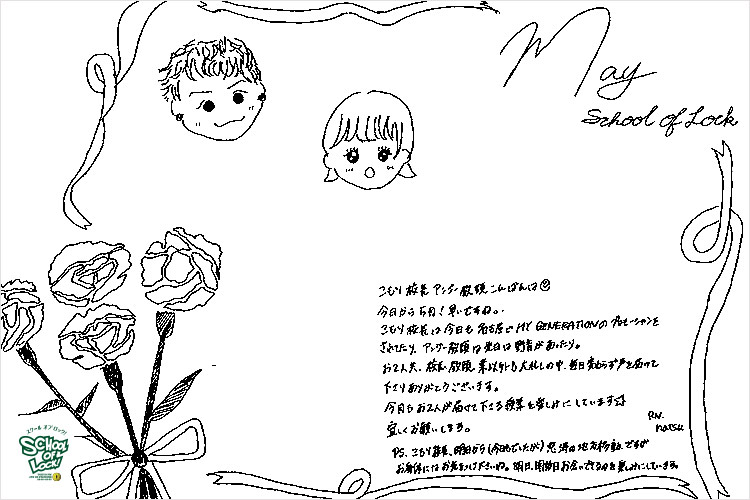 May
School of Lock
こもり校長 アンジー教頭 こんばんは
今日から5月！早いですね。
こもり校長は今日も名古屋でMY GENERATIONのプロモーションを
されてたり、アンジー教頭は先日は野音があったり。
お2人共、校長、教頭業以外も大忙しの中、毎日変わらず声を届けて
下さりありがとうございます。
今日もお2人が届けて下さる授業を楽しみにしています
宜しくお願いします。
RN. natsu
P.S. こもり校長、明日から(今日もでしたが)怒涛の地方移動ですが
お身体にはお気をつけくださいね。明日、
スクール オブ ロック!
SCHOOL OF LOCK!